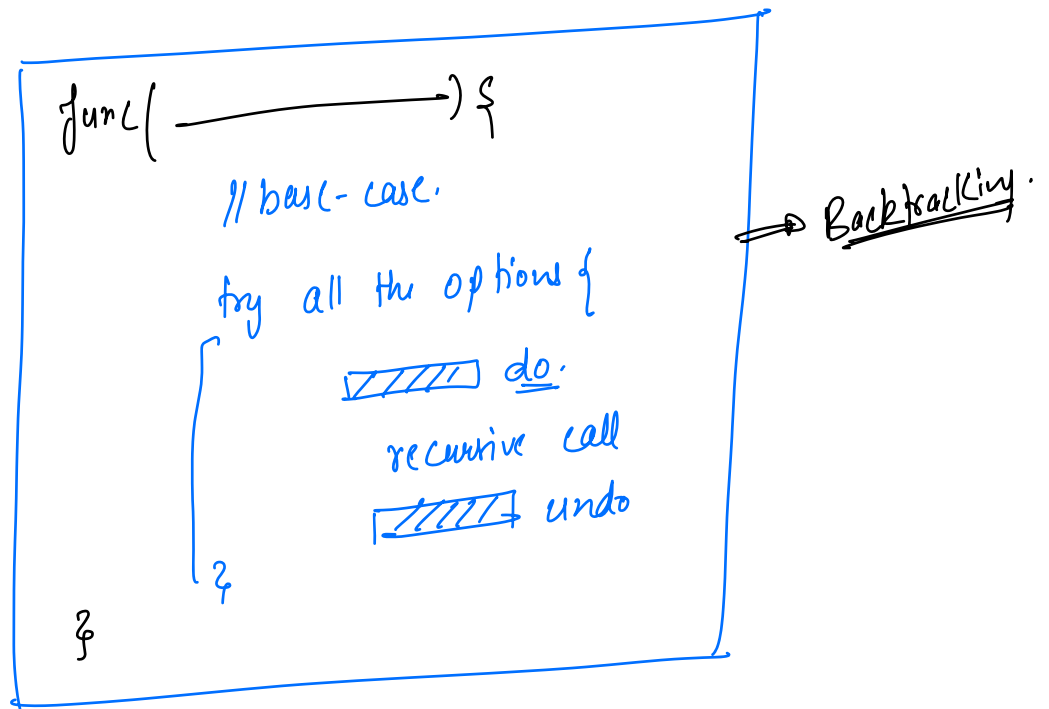 func( ) {
// base-case.
try all the options {
do.
recursive call
undo
}
}
Backtracking.